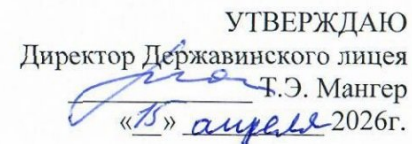 УТВЕРЖДАЮ
Директор Державинского лицея
Т.Э. Мангер
«15» апреля 2026г.